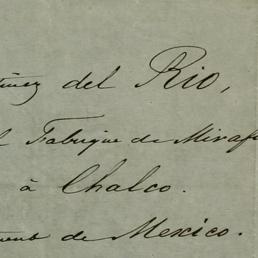 del Rio,
Fabrique de Miraf
à Chalco.
de Mexico.